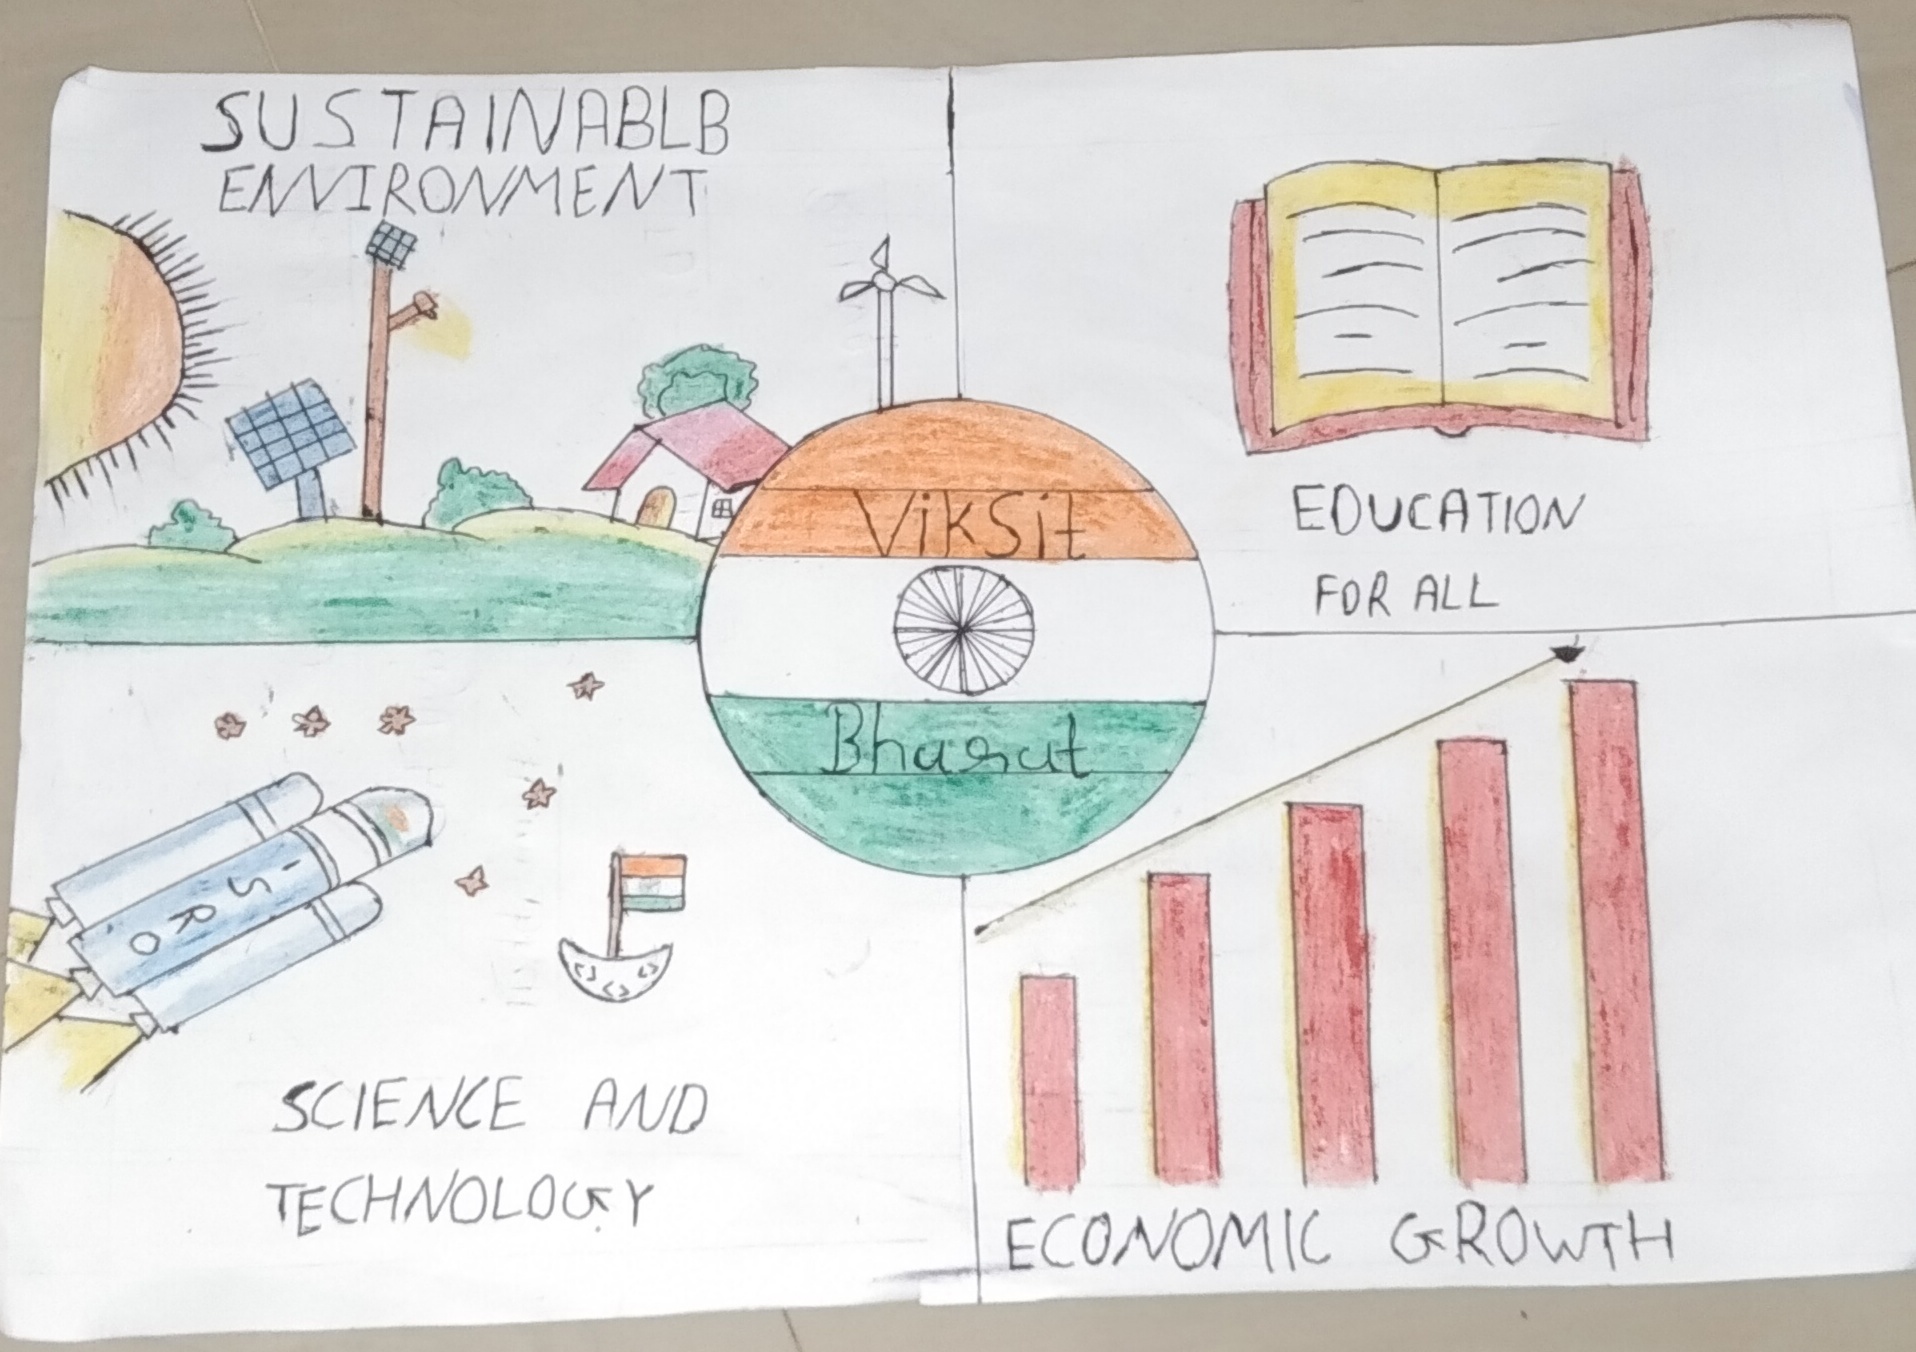 SUSTAINABLB
ENVIRONMENT
EDUCATION
FOR ALL
Viksit
Bharat
ISRO
SCIENCE AND
TECHNOLOGY
ECONOMIC GROWTH